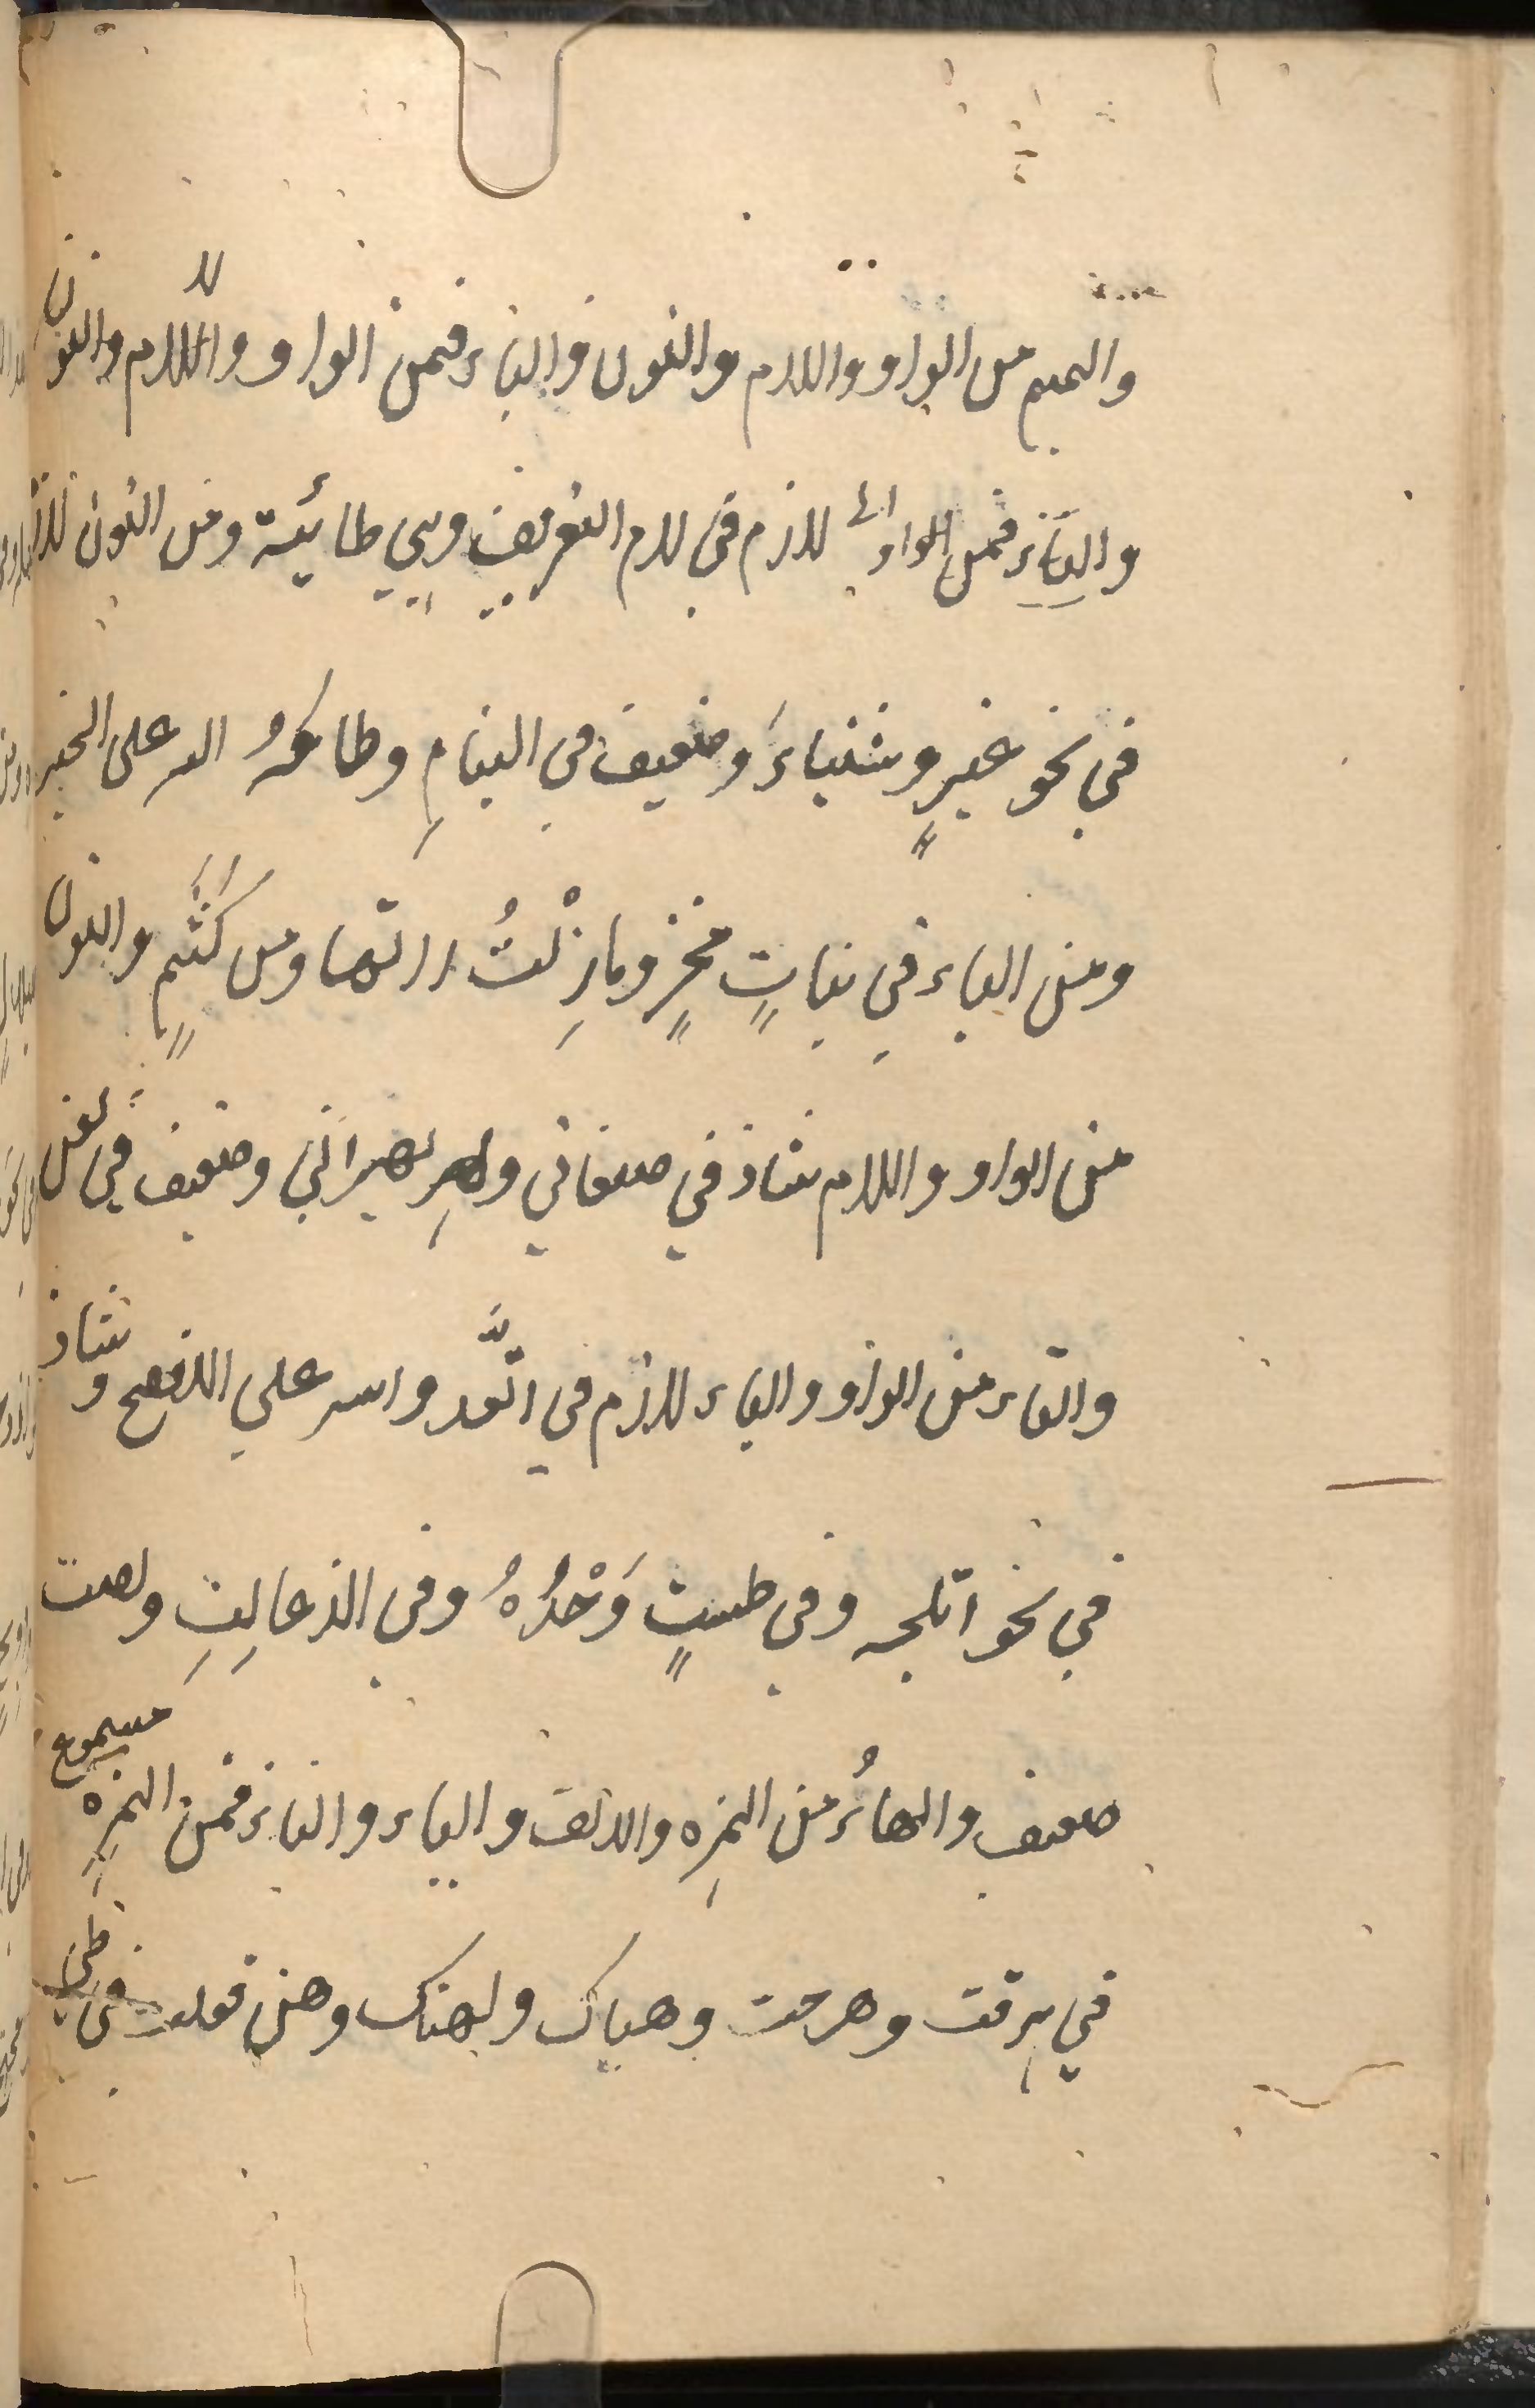 والميم من الواو واللام والنون والباء فمن الواو واللام والنون
والباء فمن الواو لازم في لام التعريف وهي طائية ومن النون لازم
في نحو عنبرٍ وشنباءَ وضعيف في البنامِ وطامهُ الله على الخير
ومن الباء في بناتٍ مخرٍ وما زِلْتُ راتما ومن كَثَمٍ والنون
من الواو واللام شاذ في صنعاني وبهراني وضعيف في لعن
والتاء من الواو والياء لازم في اتَّعد واتسر علي الافصح وشاذ
في نحو اتلجه وفي طستٍ وَحْدُهُ وفي الذعالِتِ ولصت
ضعيف والهاءُ من الهمزه والالف والياء والتاء فمن الهمزه مسموع
في هرقت وهرحت وهياك ولهنك وهن فعلت في طي